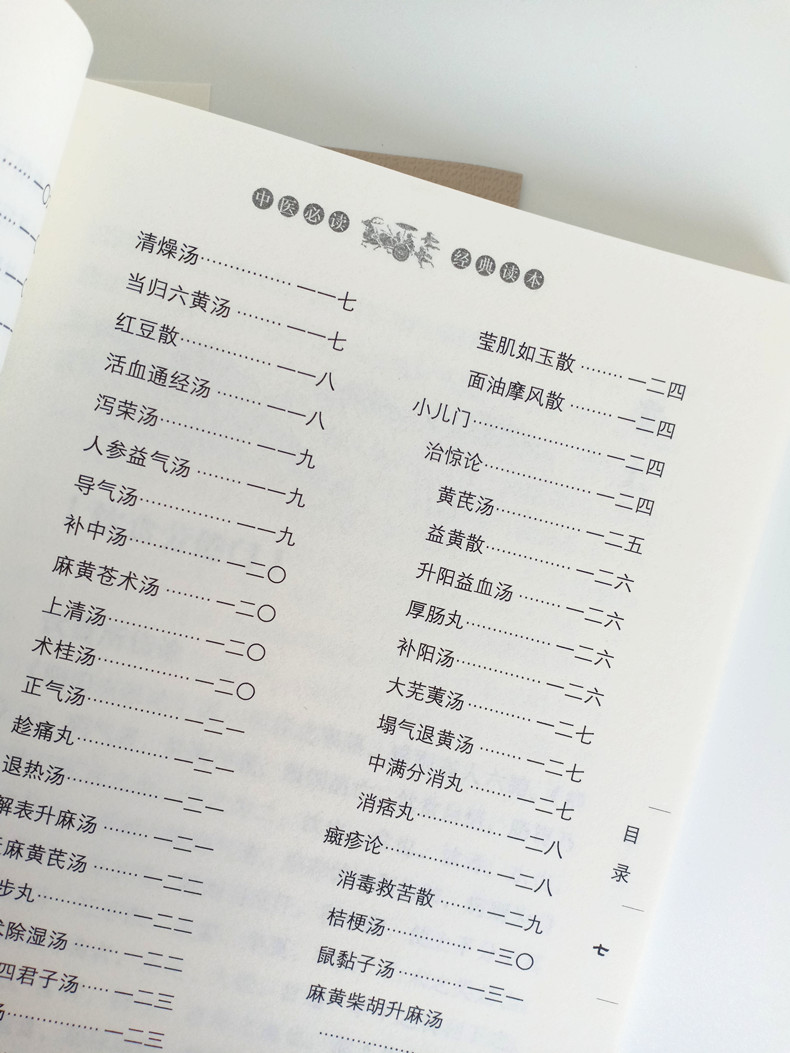 中医必读 经典读本
清燥汤…………一一七
当归六黄汤……一一七
红豆散…………一一八
活血通经汤……一一八
泻荣汤…………一一九
人参益气汤……一一九
导气汤…………一一九
补中汤…………一二〇
麻黄苍术汤……一二〇
上清汤…………一二〇
术桂汤…………一二〇
正气汤…………一二一
趁痛丸…………一二一
退热汤…………一二一
解表升麻汤……一二一
麻黄芪汤……一二二
步丸…………一二二
除湿汤……一二二
四君子汤……一二三
汤…………一二三
莹肌如玉散……一二四
面油摩风散……一二四
小儿门…………一二四
治惊论…………一二四
黄芪汤…………一二五
益黄散…………一二六
升阳益血汤……一二六
厚肠丸…………一二六
补阳汤…………一二六
大芜荑汤………一二七
塌气退黄汤……一二七
中满分消丸……一二七
消痞丸…………一二八
癍疹论…………一二八
消毒救苦散……一二九
桔梗汤…………一三〇
鼠黏子汤………一三一
麻黄柴胡升麻汤
目录
七